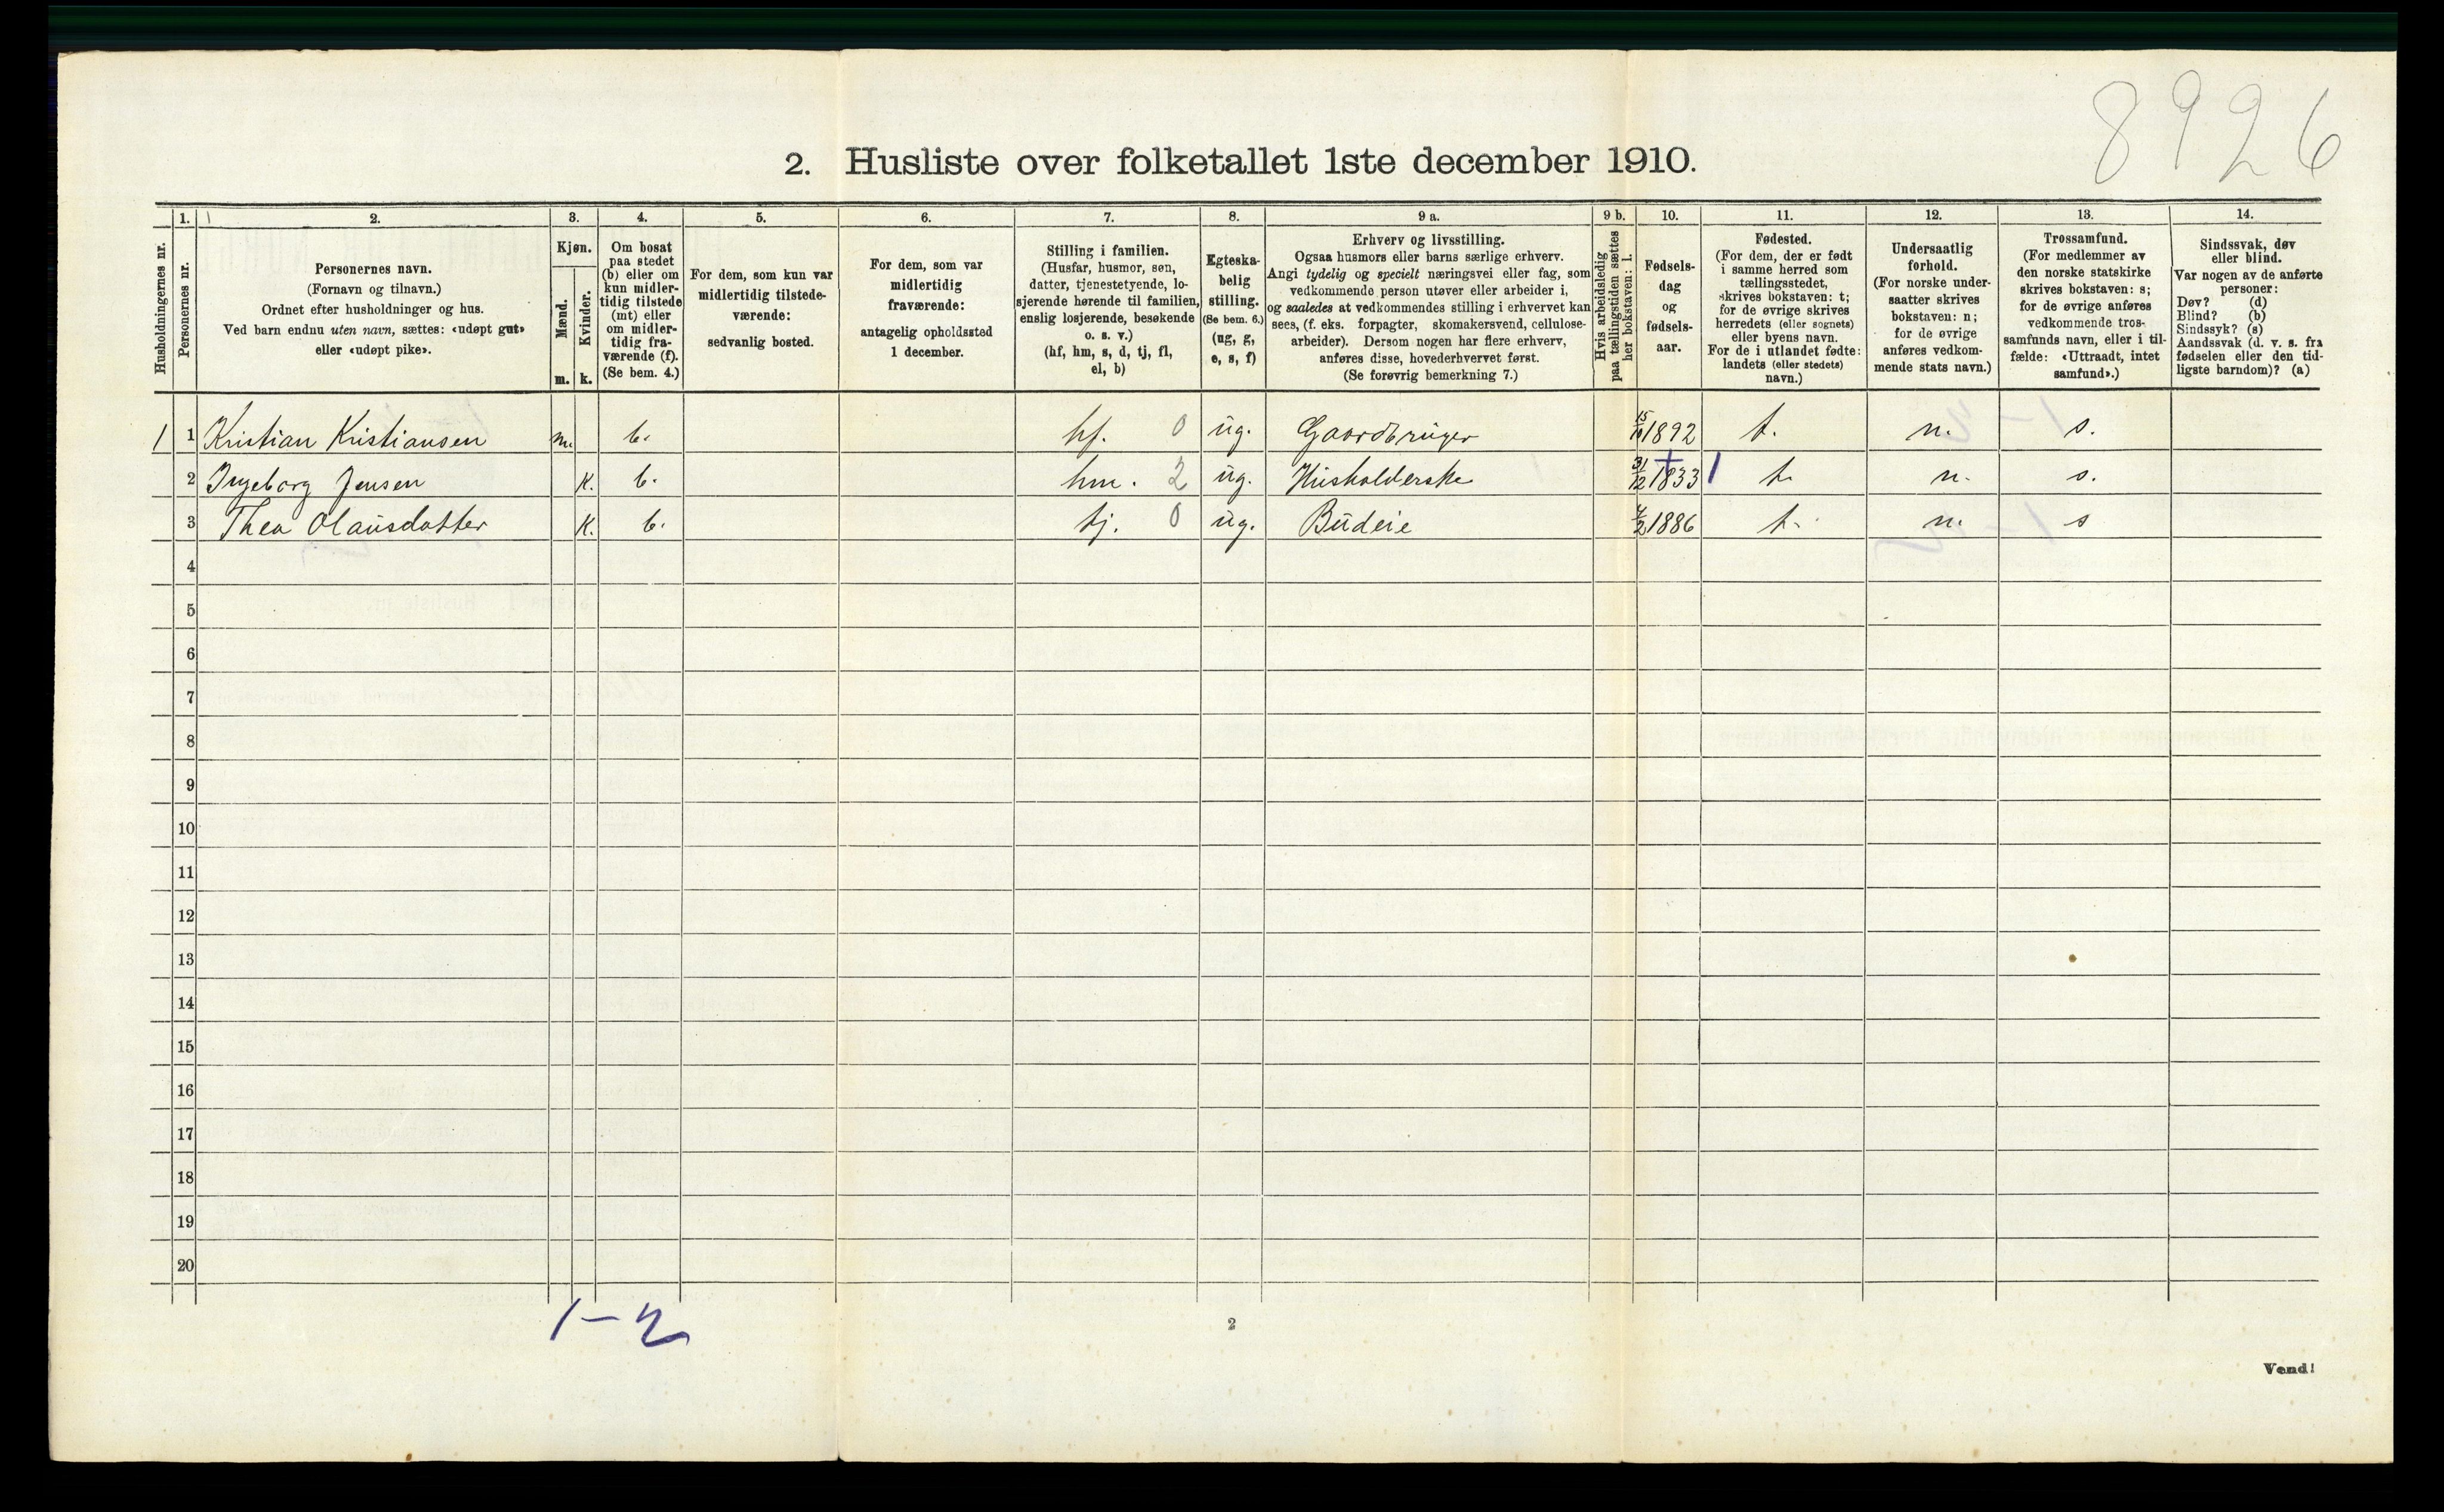 8926
2. Husliste over folketallet 1ste december 1910.
Husholdningernes nr.
1.
Personernes nr.
2.
Personernes navn.
(Fornavn og tilnavn.)
Ordnet efter husholdninger og hus.
Ved barn endnu uten navn, sættes: «udøpt gut»
eller «udøpt pike».
3.
Kjøn.
Mænd.
m.
Kvinder.
k.
4.
Om bosat
paa stedet
(b) eller om
kun midler-
tidig tilstede
(mt) eller
om midler-
tidig fra-
værende (f).
(Se bem. 4.)
5.
For dem, som kun var
midlertidig tilstede-
værende:
sedvanlig bosted.
6.
For dem, som var
midlertidig
fraværende:
antagelig opholdssted
1 december.
7.
Stilling i familien.
(Husfar, husmor, søn,
datter, tjenestetyende, lo-
sjerende hørende til familien,
enslig losjerende, besøkende
o. s. v.)
(hf, hm, s, d, tj, fl,
el, b)
8.
Egteska-
belig
stilling.
(Se bem. 6.)
(ug, g,
e, s, f)
9 a.
Erhverv og livsstilling.
Ogsaa husmors eller barns særlige erhverv.
Angi tydelig og specielt næringsvei eller fag, som
vedkommende person utøver eller arbeider i,
og saaledes at vedkommendes stilling i erhvervet kan
sees, (f. eks. forpagter, skomakersvend, cellulose-
arbeider). Dersom nogen har flere erhverv,
anføres disse, hovederhvervet først.
(Se forøvrig bemerkning 7.)
9 b.
Hvis arbeidsledig
paa tællingstiden sættes
her bokstaven: l.
10.
Fødsels-
dag
og
fødsels-
aar.
11.
Fødested.
(For dem, der er født
i samme herred som
tællingsstedet,
skrives bokstaven: t;
for de øvrige skrives
herredets (eller sognets)
eller byens navn.
For de i utlandet fødte:
landets (eller stedets)
navn.)
12.
Undersaatlig
forhold.
(For norske under-
saatter skrives
bokstaven: n;
for de øvrige
anføres vedkom-
mende stats navn.)
13.
Trossamfund.
(For medlemmer av
den norske statskirke
skrives bokstaven: s;
for de øvrige anføres
vedkommende tros-
samfunds navn, eller i til-
fælde: «Uttraadt, intet
samfund».)
14.
Sindssvak, døv
eller blind.
Var nogen av de anførte
personer:
Døv? (d)
Blind? (b)
Sindssyk? (s)
Aandssvak (d. v. s. fra
fødselen eller den tid-
ligste barndom)? (a)
1 1 Kristian Kristiansen m. b. hf. 0 ug. Gaardbruger 1892 t. n. s.
2 Ingeborg Jensen K. b. hm. 2 ug. Husholderske 31/12 1833 t. n. s.
3 Thea Olausdatter K. b. tj. 0 ug. Budeie 1886 t. n. s
4
5
6
7
8
9
10
11
12
13
14
15
16
17
18
19
20
1-2
2
Vend!